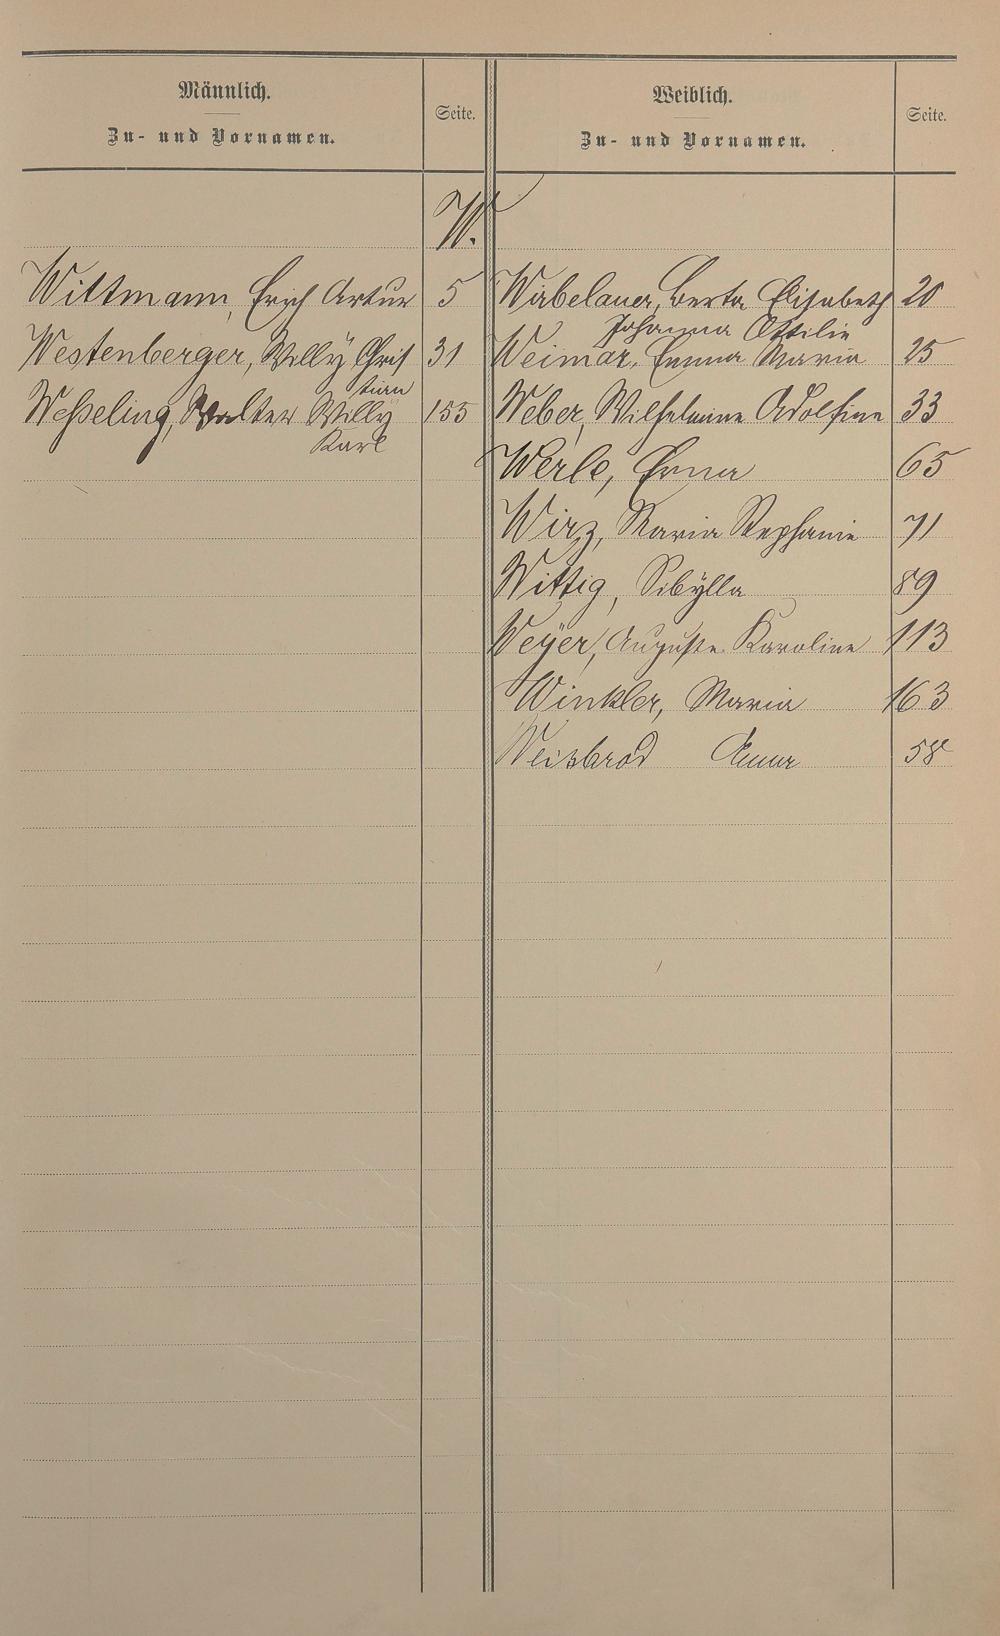 Männlich.
Zu- und Vornamen.
Seite.
Weiblich.
Zu- und Vornamen.
Seite.
W.
Wittmann, Erich Artur 5
Westenberger, Willy Chris 31
tian
Weßeling, Walter Willy 155
Karl
Wirbelauer, Berta Elisabeth 20
Johanna Ottilie
Weimar, Emma Maria 25
Weber, Wilhelmine Adolfine 33
Werle, Erna 65
Wirz, Maria Stephanie 71
Wittig, Sibÿlla 89
Weÿer, Auguste Karoline 113
Winkler, Maria 163
Weisbrod Anna 58